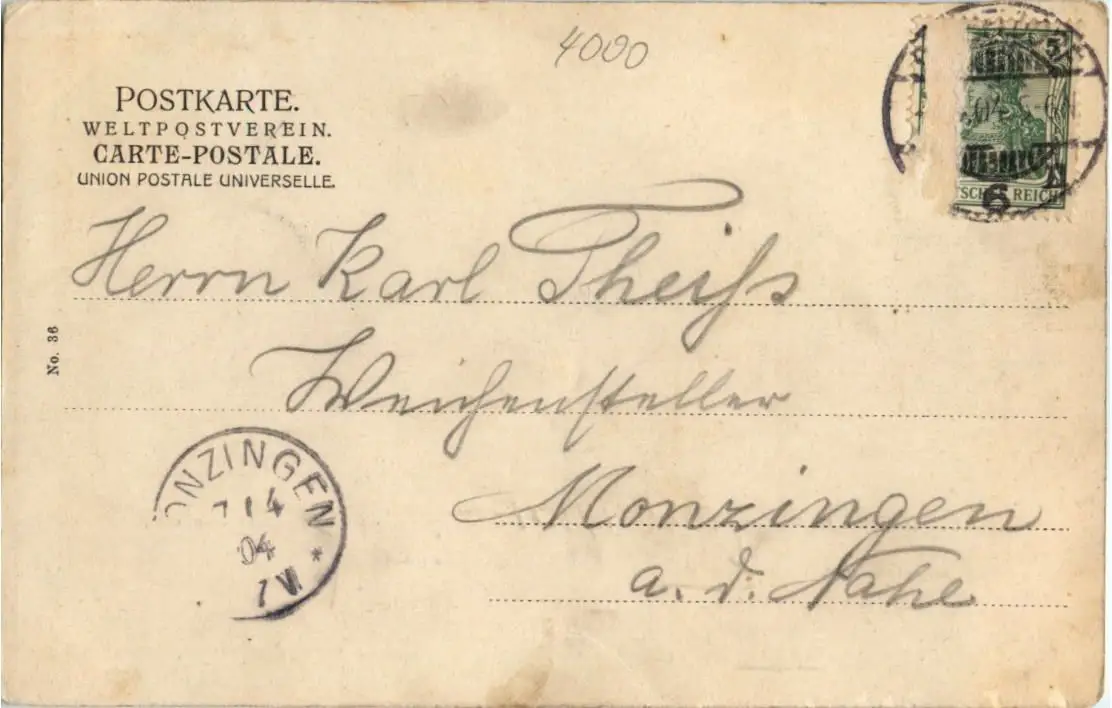 4000
POSTKARTE.
WELTPOSTVEREIN.
CARTE-POSTALE.
UNION POSTALE UNIVERSELLE.
5
04 5-6N
TSCHES REICH
6
Herrn Karl Theißs
Weichensteller
Monzingen
a. d. Nahe
No. 36
ONZINGEN *
7 4
04